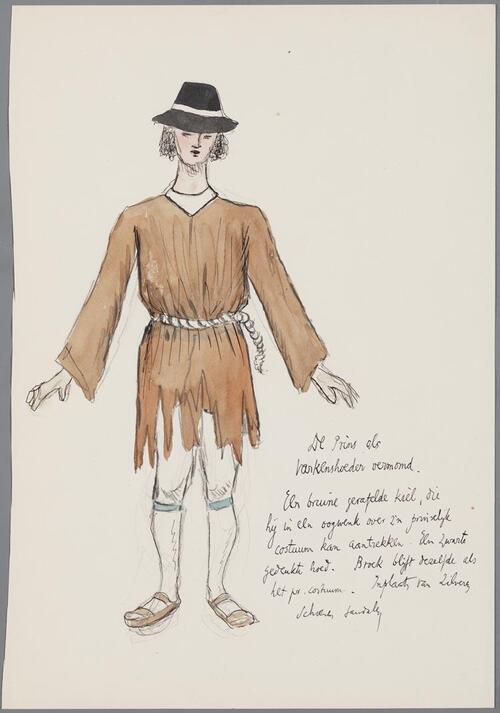 De Prins als
Varkenshoeder vermomd.
Een bruine gerafelde kiel, die
hij in een oogwenk over z'n prinselijk
costuum kan aantrekken. Een zwarte
gedeukte hoed. Broek blijft dezelfde als
het pr. costuum. Inplaats van zilveren
Schoenen Sandalen